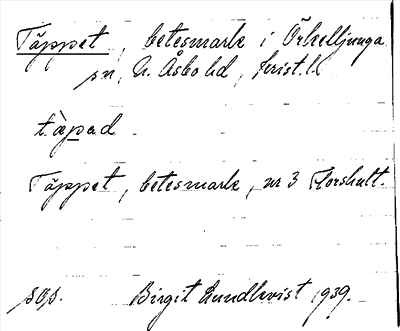 Täppet, betesmark i Örkelljunga
sn, N. Åsbo hd, Krist. l.
tàpad
Täppet, betesmark, nr 3 Florshult.
sos. Birgit Lundkvist 1939.